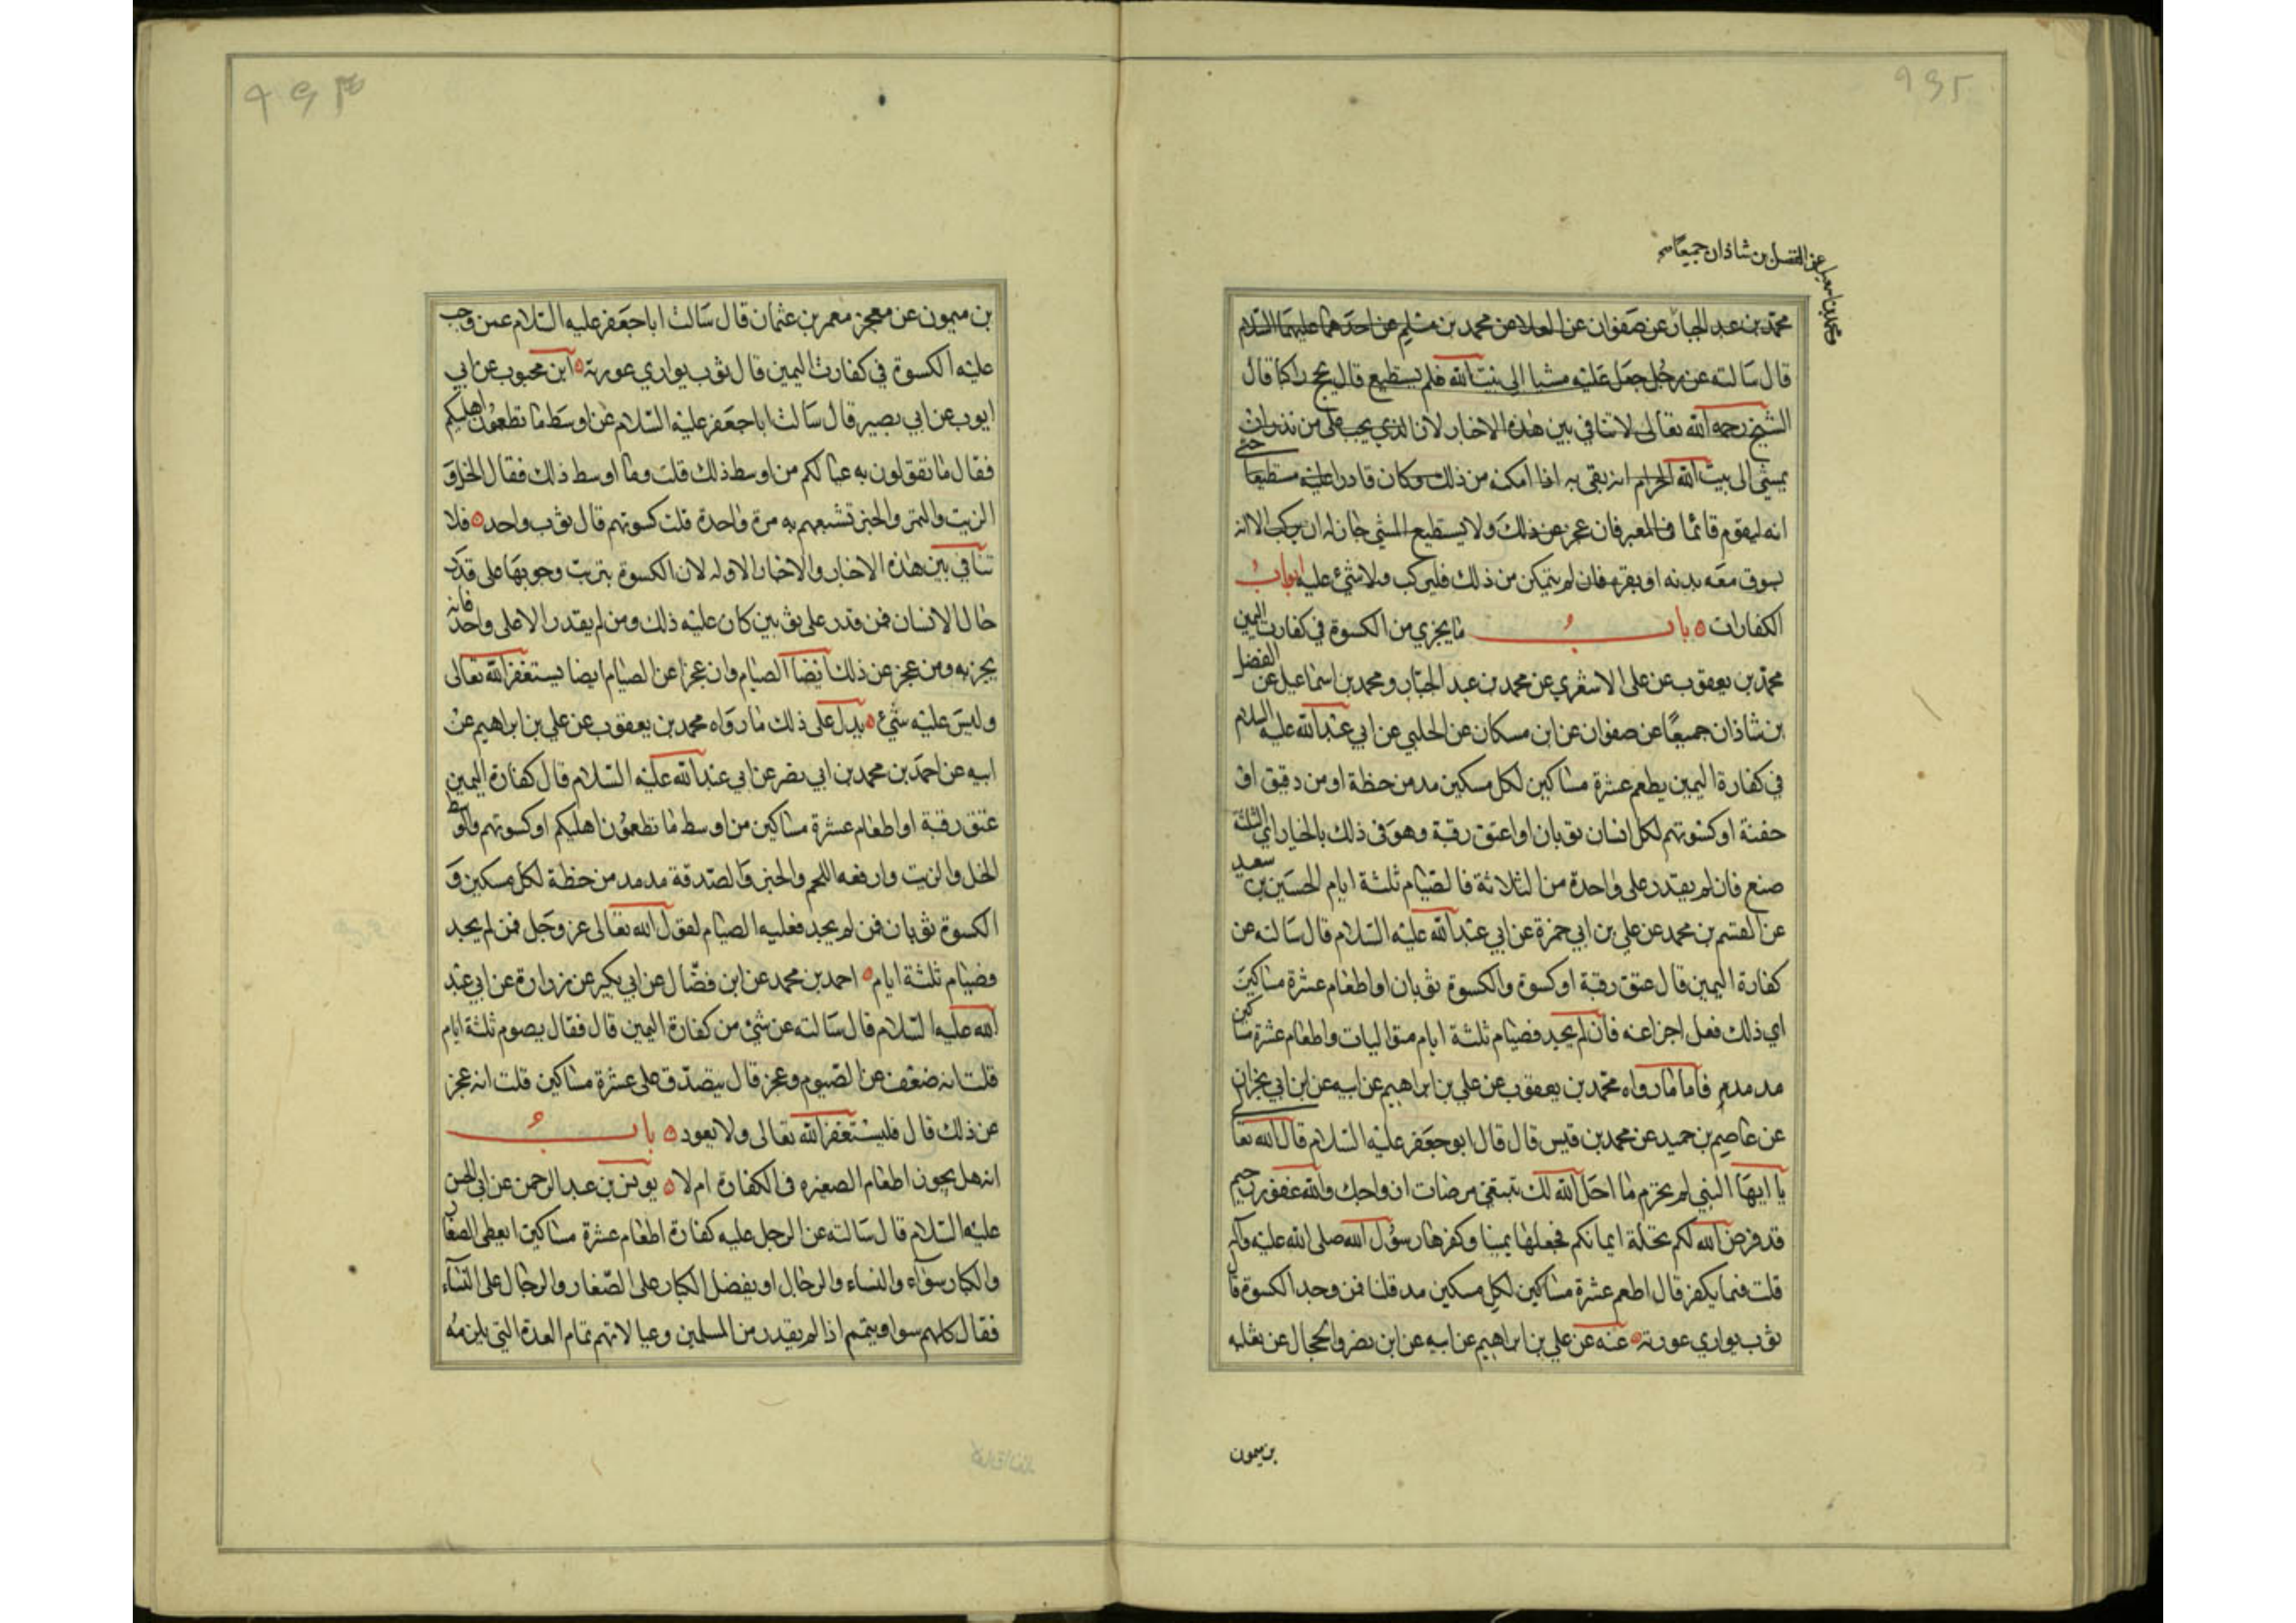 محمد بن اسمعيل عن الفضل بن شاذان جميعا صح
محمد بن عبد الجبار عن صفوان عن العلا عن محمد بن مسلم عن احدهما عليهما السلام
قال سالته عن رجل جعل عليه مشيا الى بيت الله فلم يستطيع قال يحج راكبا قال
الشيخ رحمه الله تعالى لا تنافي بين هذه الاخبار لان الذي يجب على من نذر ان
يمشي الى بيت الله الحرام ان يفي به اذا امكنه من ذلك وكان قادرا عليه مستطيعا حتى
انه ليقوم قائما في المعبر فان عجز عن ذلك ولا يستطيع المشي جاز له ان يركب الا انه
يسوق معه بدنه او بقره فان لم يتمكن من ذلك فليركب ولا شئ عليه ابواب
الكفارات باب ما يجزي من الكسوة في كفارت اليمين
محمد بن يعقوب عن علي الاشعري عن محمد بن عبد الجبار ومحمد بن اسماعيل عن الفضل
بن شاذان جميعا عن صفوان عن ابن مسكان عن الحلبي عن ابي عبد الله عليه السلام
في كفارة اليمين يطعم عشرة مساكين لكل مسكين مد من حنطة او من دقيق او
حفنة او كسوتهم لكل انسان ثوبان او اعتق رقبة وهو في ذلك بالخيار اي الثلثة
صنع فان لم يقدر على واحدة من الثلاثة فالصيام ثلثة ايام الحسين بن سعيد
عن القسم بن محمد عن علي بن ابي حمزة عن ابي عبد الله عليه السلام قال سالته عن
كفارة اليمين قال عتق رقبة او كسوة والكسوة ثوبان او اطعام عشرة مساكين
اي ذلك فعل اجزا عنه فان لم يجد فصيام ثلثة ايام متواليات واطعام عشرة مساكين
مد مد فاما ما رواه محمد بن يعقوب عن علي بن ابراهيم عن ابيه عن ابن ابي نجران
عن عاصم بن حميد عن محمد بن قيس قال قال ابو جعفر عليه السلام قال الله تعا
يا ايها النبي لم تحرم ما احل الله لك تبتغي مرضات ازواجك والله غفور رحيم
قد فرض الله لكم تحلة ايمانكم فجعلها يمينا وكفرها رسول الله صلى الله عليه وآله
قلت فما يكفر قال اطعم عشرة مساكين لكل مسكين مد قلنا فمن وجد الكسوة قال
ثوب يواري عورته عنه عن علي بن ابراهيم عن ابيه عن ابن نصر والحجال عن ثعلبه
بن ميمون
بن ميمون عن معجز معمر بن عثمان قال سالت ابا جعفر عليه السلام عمن وجب
عليه الكسوة في كفارت اليمين قال ثوب يواري عورته ابن محبوب عن ابي
ايوب عن ابي بصير قال سالت ابا جعفر عليه السلام عن اوسط ما تطعمون اهليكم
فقال ما تقولون به عيالكم من اوسط ذلك قلت وما اوسط ذلك فقال الخل و
الزيت والتمر والخبز تشبعهم به مرة واحدة قلت كسوتهم قال ثوب واحد فلا
تنافي بين هذه الاخبار والاخبار الاوله لان الكسوة يترتب وجوبها على قدر
حال الانسان فمن قدر على ثوبين كان عليه ذلك ومن لم يقدر الا على واحد فانه
يجزيه ومن عجز عن ذلك ايضا الصيام وان عجز عن الصيام ايضا يستغفر الله تعالى
وليس عليه شئ يدل على ذلك ما رواه محمد بن يعقوب عن علي بن ابراهيم عن
ابيه عن احمد بن محمد بن ابي نصر عن ابي عبد الله عليه السلام قال كفارة اليمين
عتق رقبة او اطعام عشرة مساكين من اوسط ما تطعمون اهليكم او كسوتهم والاوسط
الخل والزيت وارفعه اللحم والخبز والصدقة مد مد من حنطة لكل مسكين و
الكسوة ثوبان فمن لم يجد فعليه الصيام لقول الله تعالى عز وجل فمن لم يجد
فصيام ثلثة ايام احمد بن محمد عن ابن فضال عن ابي بكير عن زرارة عن ابي عبد
الله عليه السلام قال سالته عن شئ من كفارة اليمين قال فقال يصوم ثلثة ايام
قلت انه ضعف عن الصوم وعجز قال يتصدق على عشرة مساكين قلت انه عجز
عن ذلك قال فليستغفر الله تعالى ولا يعود باب
انه هل يجوز اطعام الصغيره في الكفارة ام لا يونس بن عبد الرحمن عن ابي الحسن
عليه السلام قال سالته عن الرجل عليه كفارة اطعام عشرة مساكين ايعطي الصغار
والكبار سواء والنساء والرجال او يفضل الكبار على الصغار والرجال على النساء
فقال كلهم سوا ويتمم اذا لم يقدر من المسلمين وعيالاتهم تمام العدة التي يلزمه